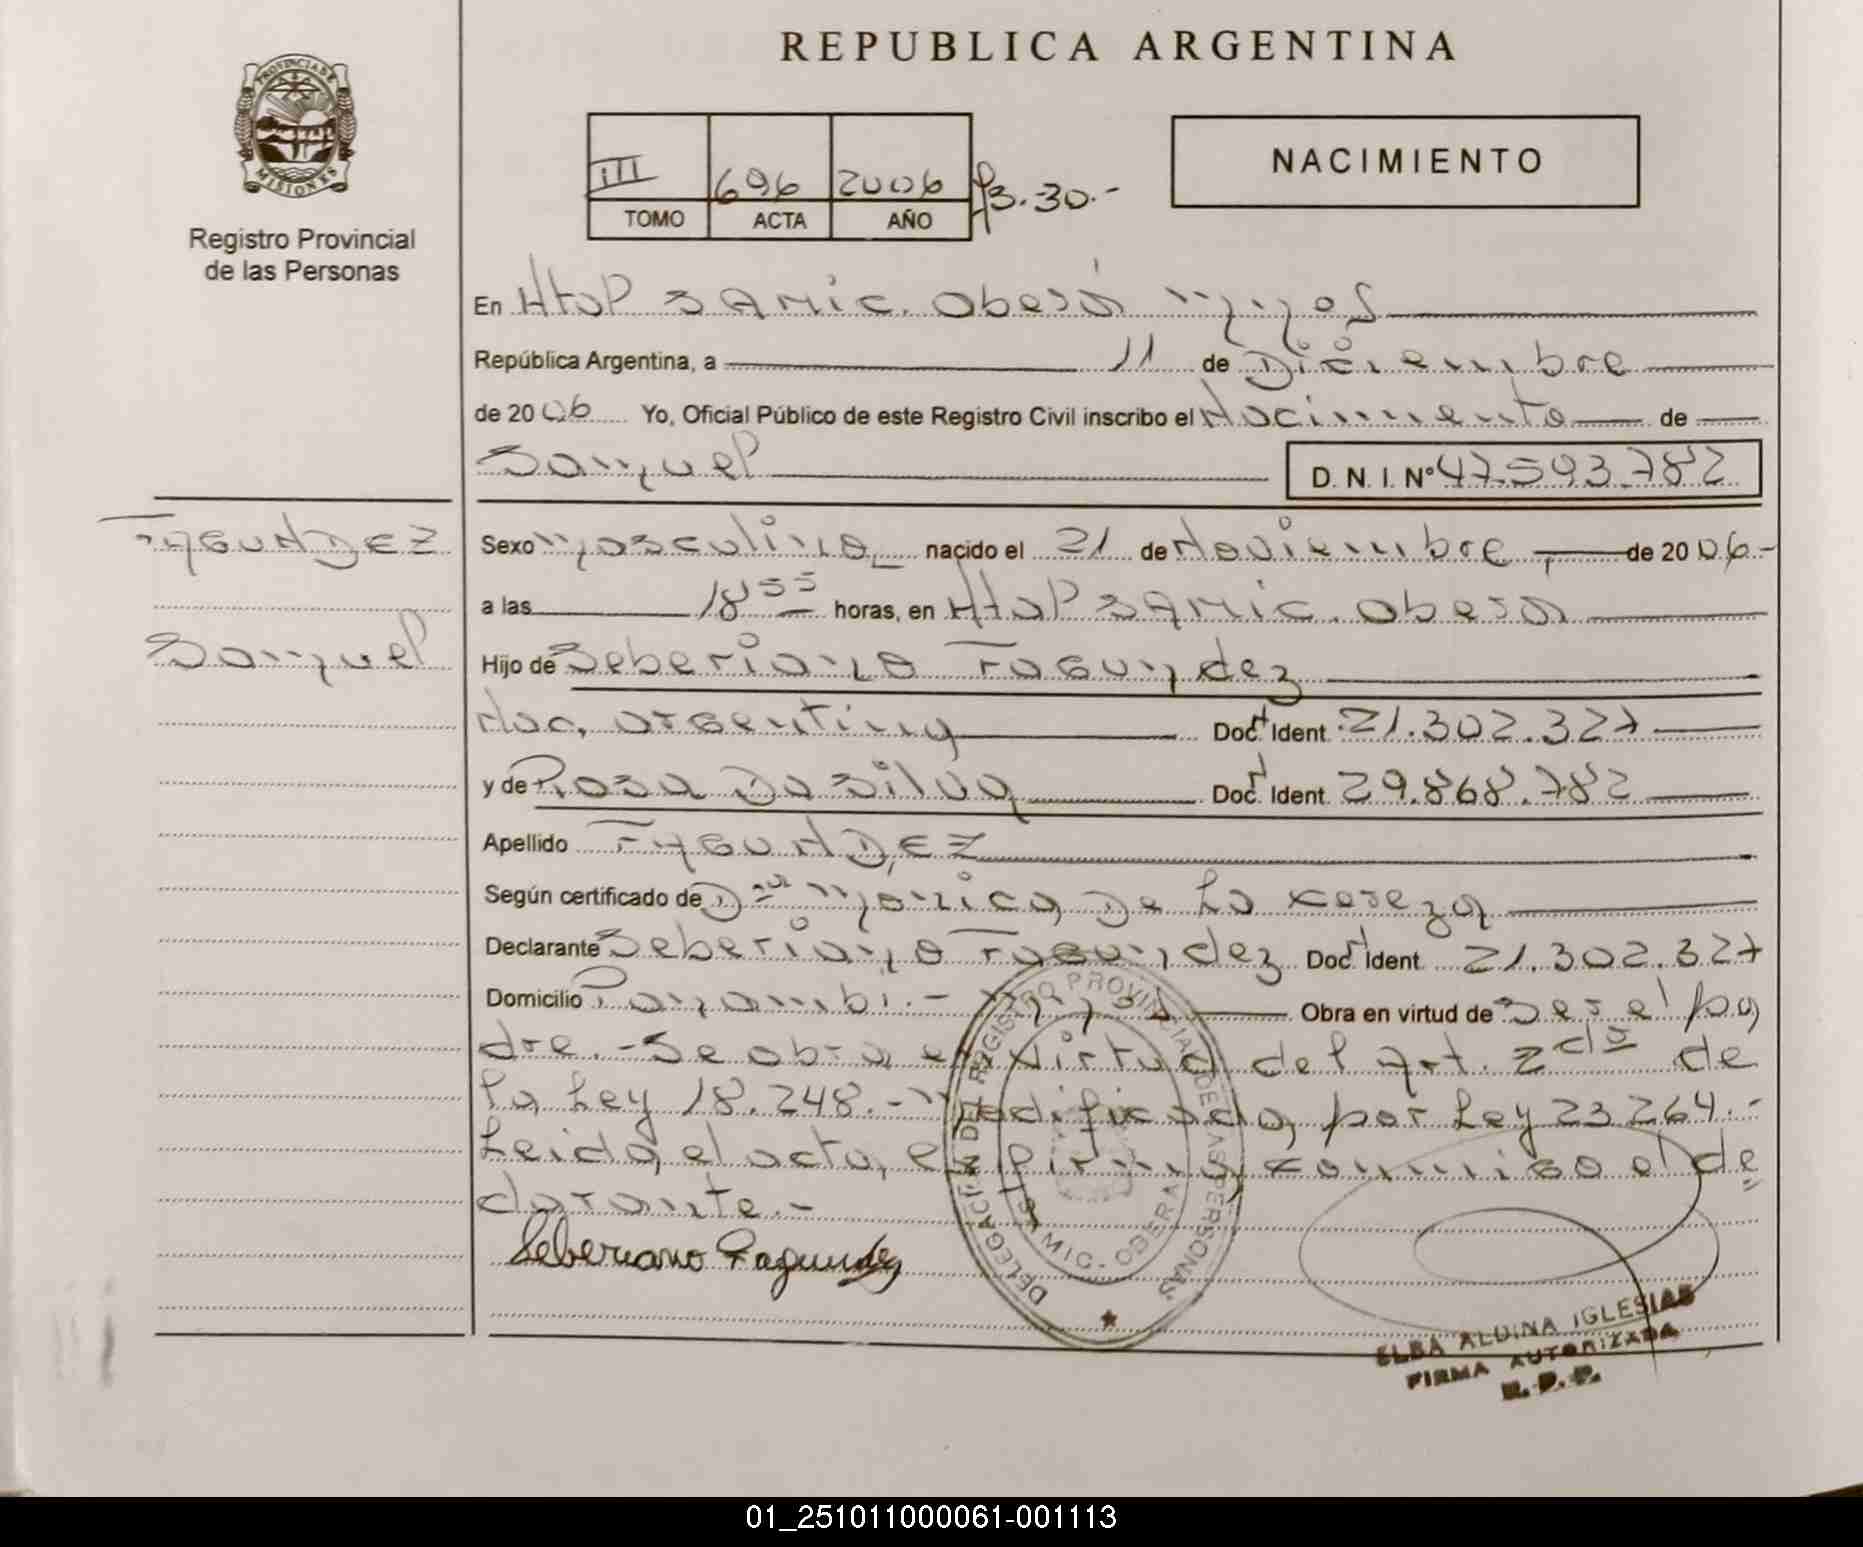 REPUBLICA ARGENTINA
PROVINCIA DE MISIONES
Registro Provincial
de las Personas
III 696 2006 f3.30.-
TOMO ACTA AÑO
NACIMIENTO
En Htal SAMIC. Oberá
República Argentina, a 11 de Diciembre
de 2006 Yo, Oficial Público de este Registro Civil inscribo el Nacimiento de
Samuel D. N. I. Nº 47.593.782
FAGUNDEZ
Samuel
Sexo Masculino nacido el 21 de Noviembre de 2006-
a las 18 55 horas, en Htal SAMIC. Oberá
Hijo de Seberiano Fagundez
Nac. argentina Doc. Ident 21.302.327
y de Rosa Da Silva Doc. Ident. 29.868.782
Apellido FAGUNDEZ
Según certificado de Dra Monica De La
Declarante Seberiano Fagundez Doc. Ident 21.302.327
Domicilio Panambi.- Obra en virtud de Ser el pa
dre.- Se obra en Virtud del Art. 2do de
la Ley 18.248.- Modificada por Ley 23264.-
Leida el acta, la firma conmigo el de
clarante.-
Seberiano Fagundez
DELEGACION DEL REGISTRO PROVINCIAL DE LAS PERSONAS
SAMIC - OBERA
ELBA ALDINA IGLESIAS
FIRMA AUTORIZADA
R. P. P.
01_251011000061-001113